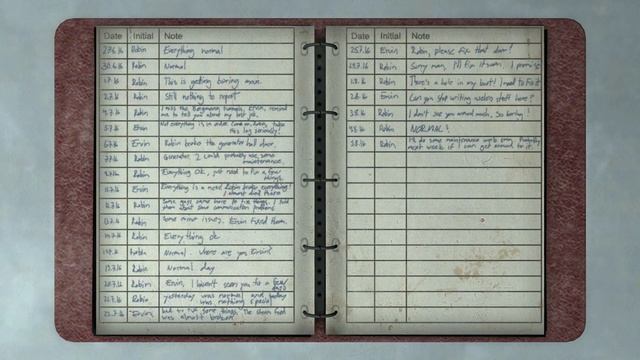 Date Initial Note
27.6.16 Robin Everything normal
30.6.16 Robin Normal
1.7.16 Robin This is getting boring man.
2.7.16 Robin Still nothing to report
Robin I miss the Bergmann tunnels, Ervin, remind
me to tell you about my last job.
5.7.16 Ervin Not everything is in order. Come on, Robin, take
this log seriously!
6.7.16 Ervin Robin broke the generator hall door.
7.7.16 Robin Generator 2 could probably use some
maintenance.
Robin Everything OK, just need to fix a few
things.
Ervin Everything is a mess, Robin broke everything!
I almost died there!
Robin Some guys came here to fix things. I told
them about some communication problems
Robin Some minor issues. Ervin fixed them.
Robin Everything ok
Robin Normal. Where are you Ervin?
Robin Normal day
Robin Ervin, I haven't seen you for a few
days
Robin yesterday was normal and today
was nothing special
Ervin Had to fix some things. The steam
was almost broken
Date Initial Note
25.7.16 Ervin Robin, please fix that door!
29.7.16 Robin Sorry man, I'll fix it soon, I promise
1.8.16 Robin There's a hole in my boot! I need to fix it
2.8.16 Ervin Can you stop writing useless stuff here?
3.8.16 Robin I don't see you around much. So boring!
Robin NORMAL!
Robin I'll do some maintenance work soon. Probably
next week if I can get around to it.